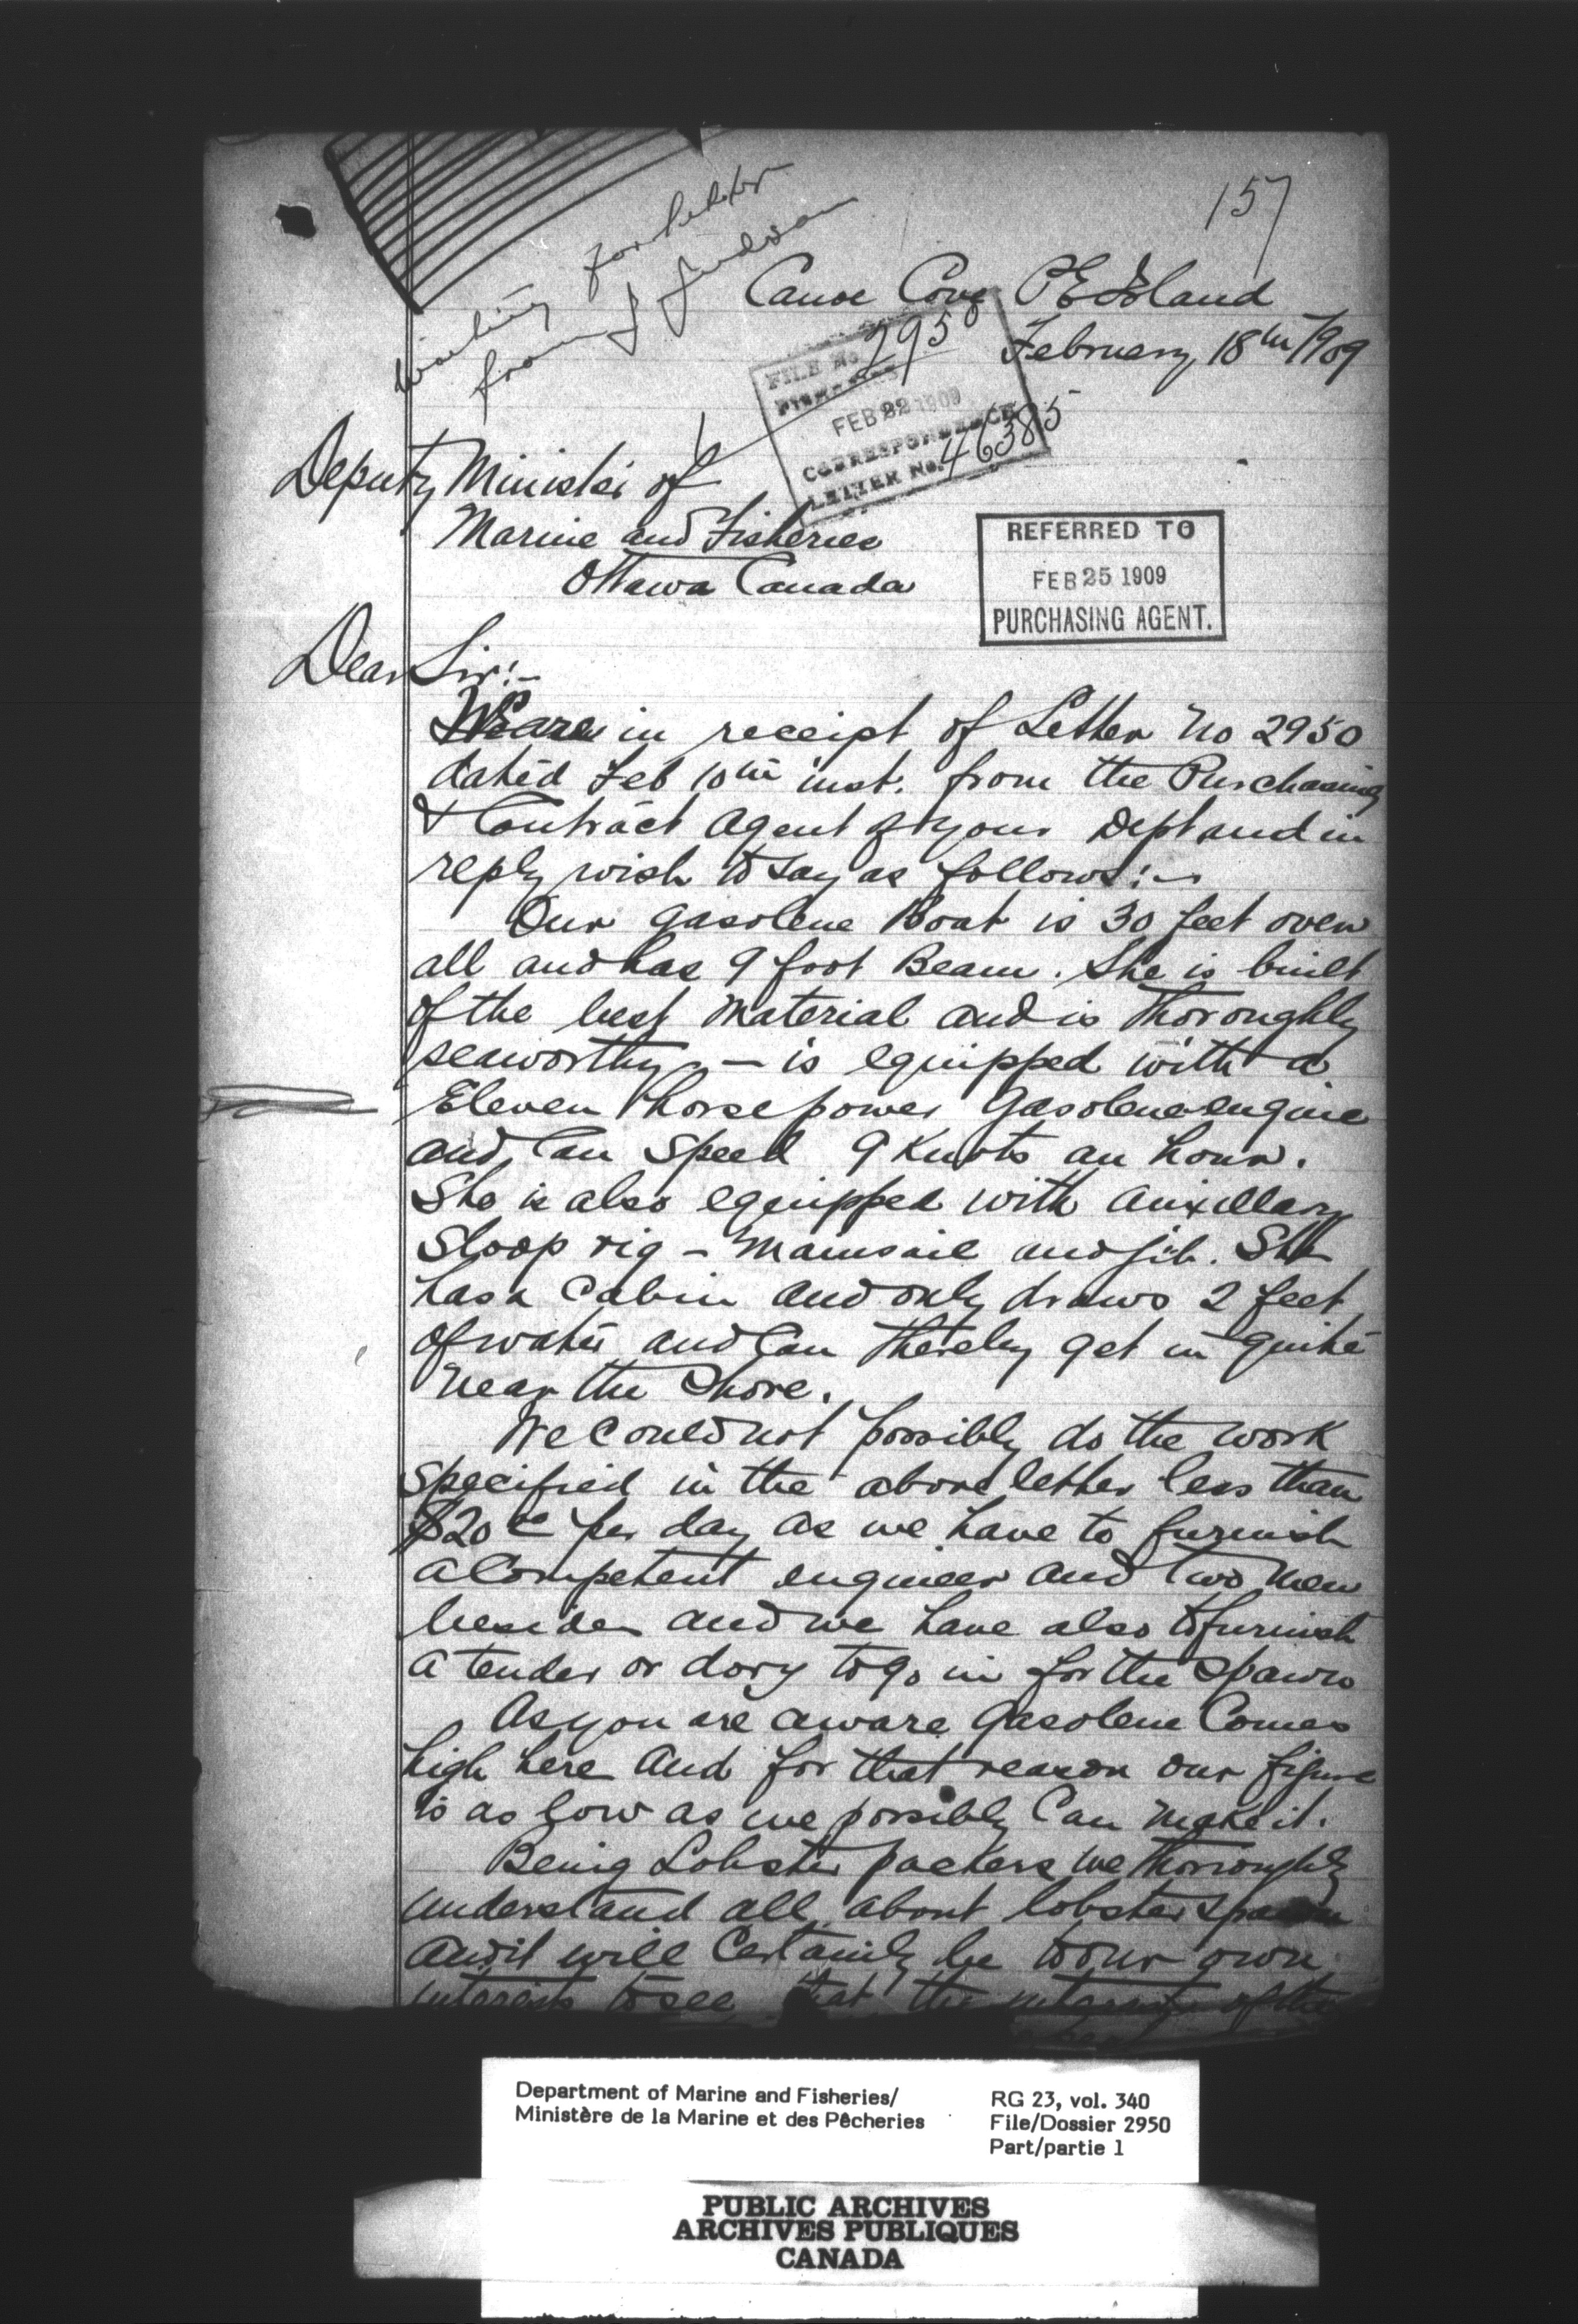 157
waiting for letter
from J Judson
Canoe Cove P E Island
February 18th 1909
FILE No. 2950
FISHERIES
FEB 22 1909
CORRESPONDENCE
LETTER No. 46385
Deputy Minister of
Marine and Fisheries
Ottawa Canada
REFERRED TO
FEB 25 1909
PURCHASING AGENT.
Dear Sir:-
We are in receipt of Letter No 2950
dated Feb 10th inst. from the Purchasing
& Contract Agent of your Dept and in
reply wish to say as follows:-
Our gasolene Boat is 30 feet over
all and has 9 foot Beam. She is built
of the best material and is thoroughly
seaworthy - is equipped with a
Eleven horse power Gasolene engine
and Can speed 9 Knots an hour.
She is also equipped with auxillary
Sloop rig - mainsail and jib. She
has a Cabin and only draws 2 feet
of water and Can thereby get in quite
near the shore.
We could not possibly do the work
specified in the above letter less than
$20 00 per day as we have to furnish
a Competent engineer and two men
besides and we have also to furnish
a tender or dory to go in for the spawn
As you are aware Gasolene Comes
high here and for that reason our figure
is as low as we possibly Can make it.
Being Lobster packers we thorroughly
understand all about lobster spawn
and it will Certainly be to our own
interests to see that the interests of the
Department of Marine and Fisheries/
Ministère de la Marine et des Pêcheries
RG 23, vol. 340
File/Dossier 2950
Part/partie 1
PUBLIC ARCHIVES
ARCHIVES PUBLIQUES
CANADA